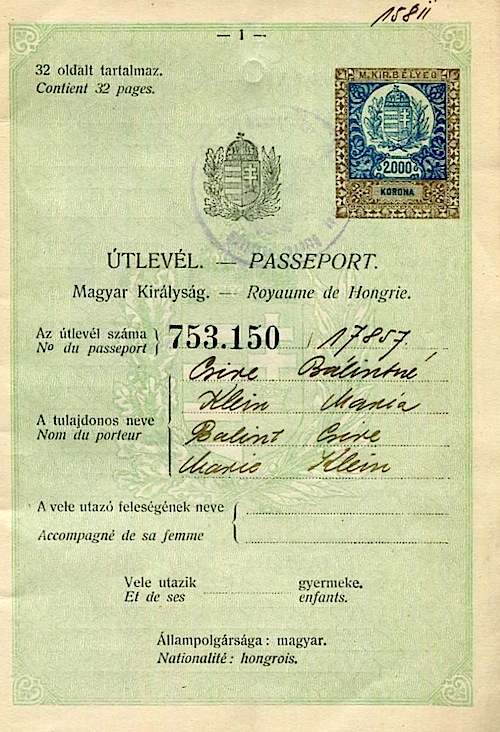 15811
— 1 —
32 oldalt tartalmaz.
Contient 32 pages.
M. KIR. BÉLYEG
2.000
KORONA
ÚTLEVÉL. — PASSEPORT.
Magyar Királyság. — Royaume de Hongrie.
Az útlevél száma
No du passeport
753.150 / 17857.
Csire Bálintné
Klein Mária
A tulajdonos neve
Nom du porteur
Balint Csire
Maria Klein
A vele utazó feleségének neve
Accompagné de sa femme
Vele utazik gyermeke.
Et de ses enfants.
Állampolgársága : magyar.
Nationalité : hongrois.